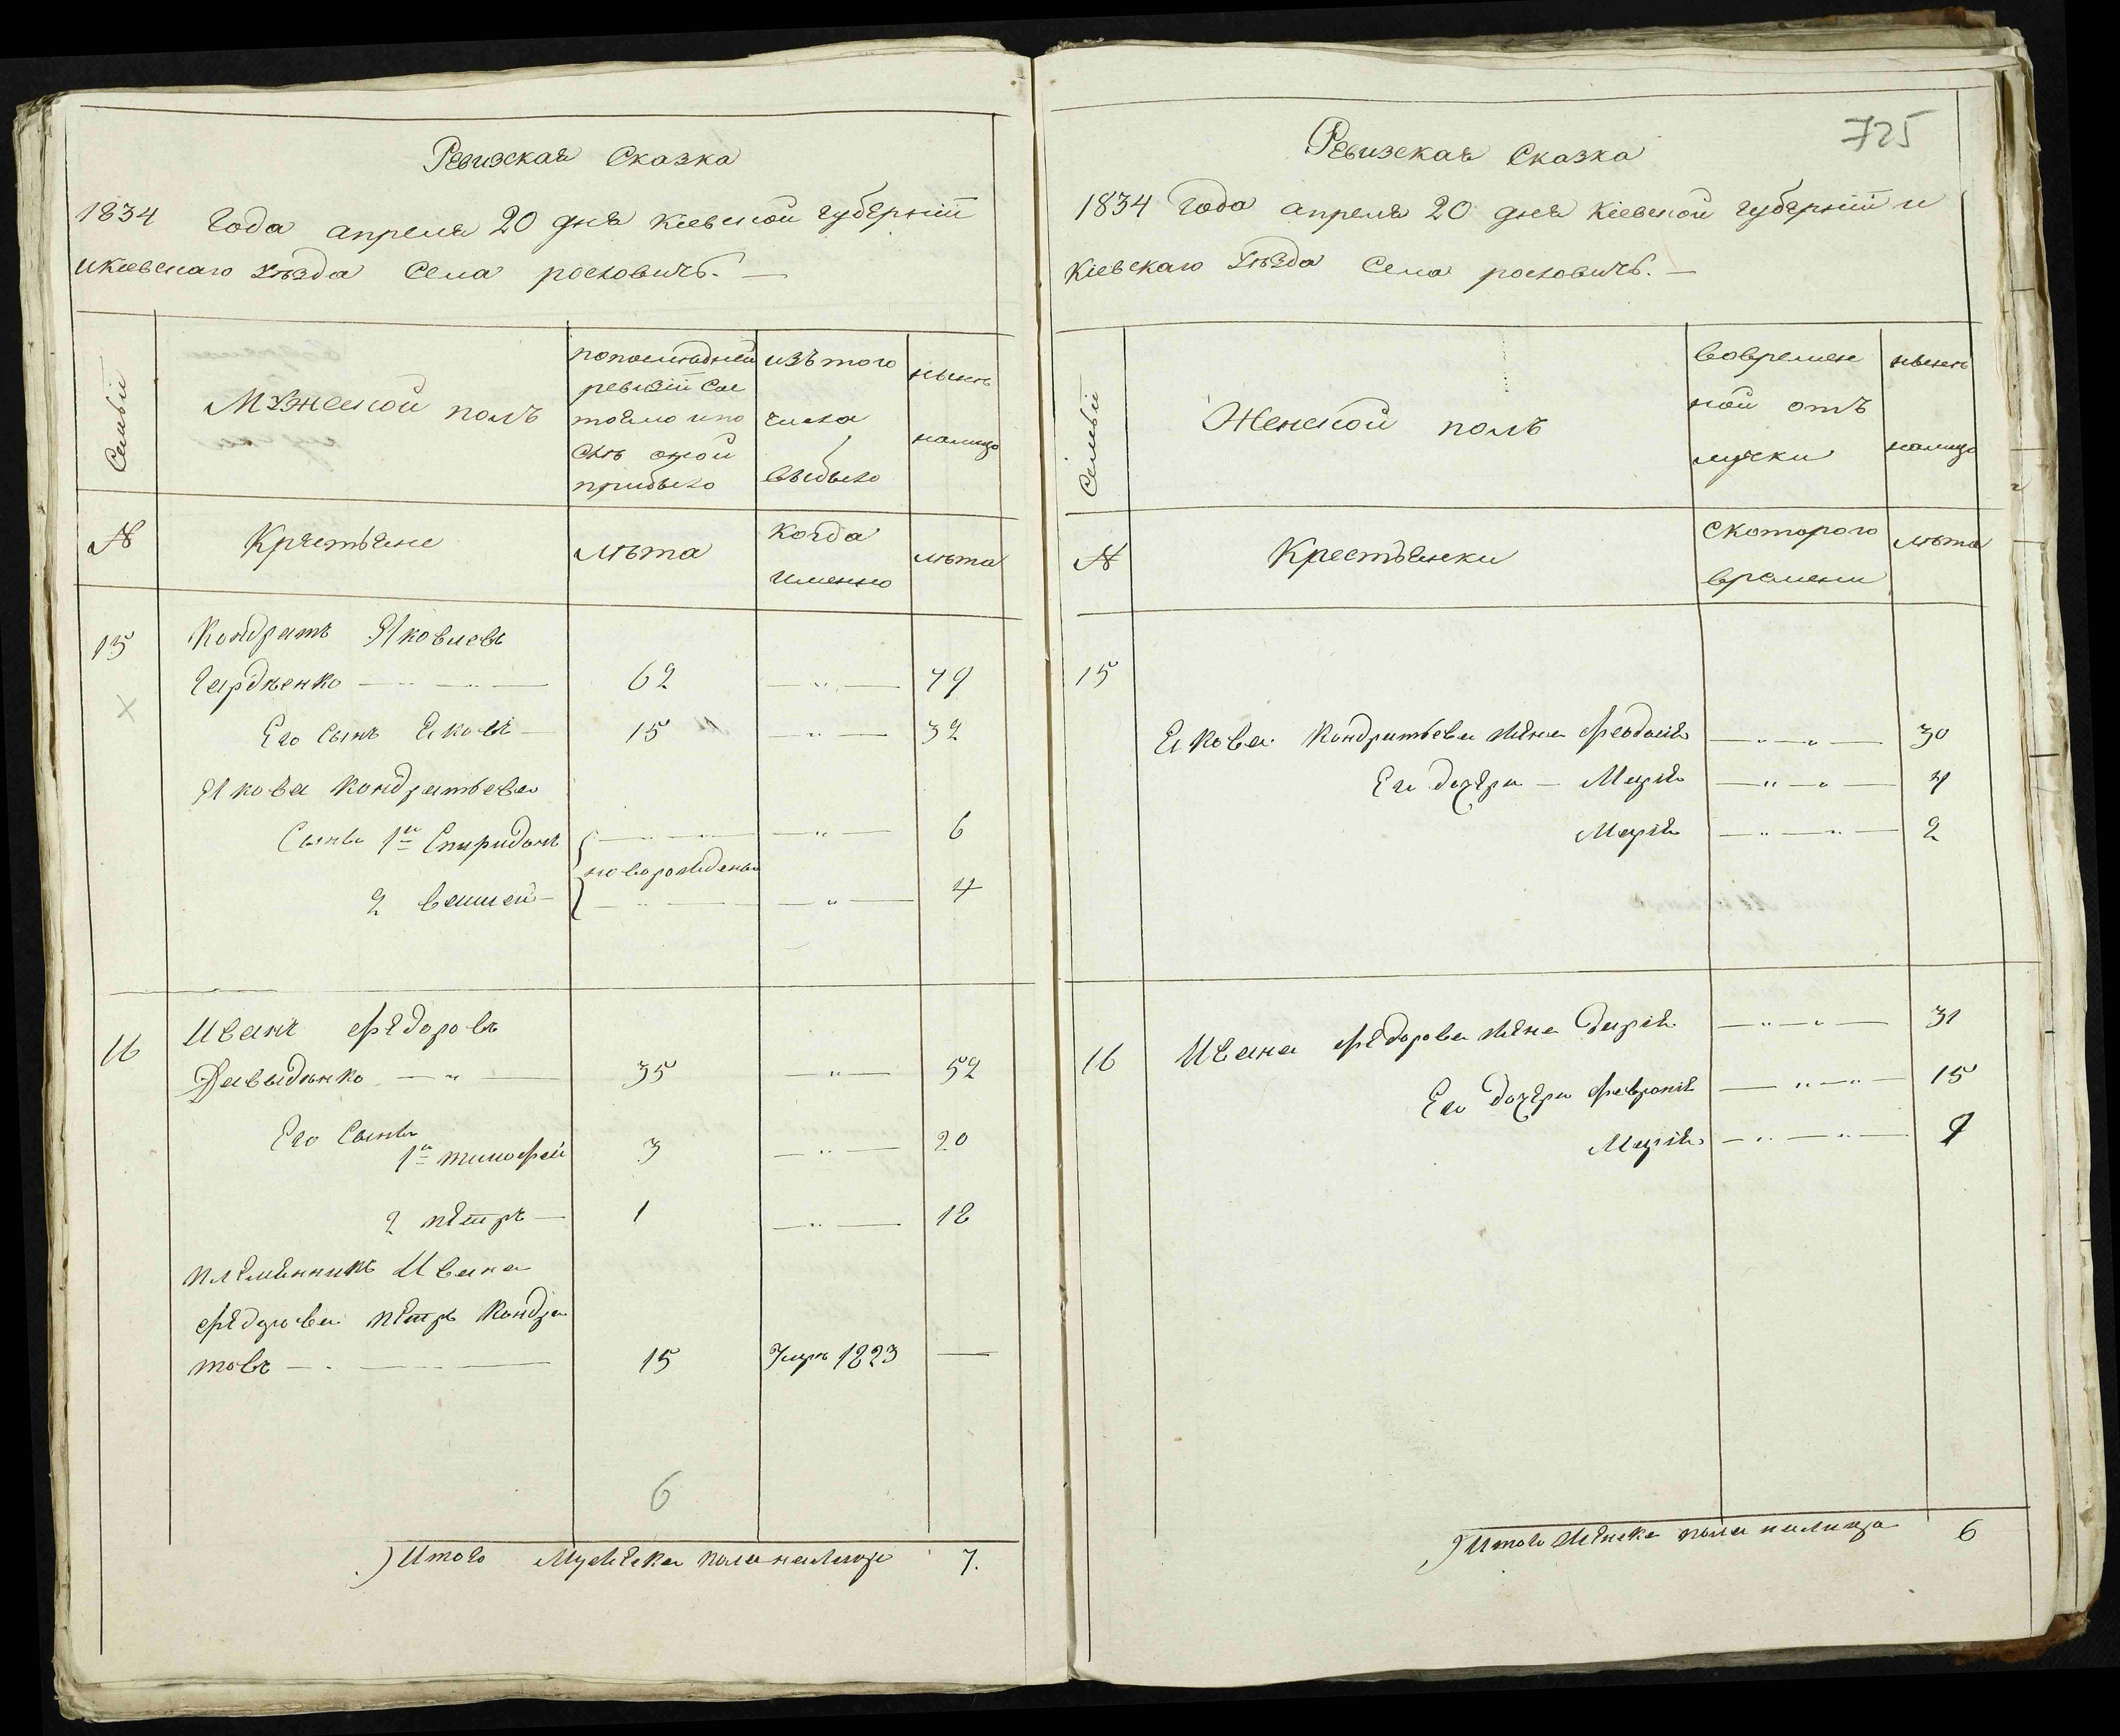 Ревизская Сказка
1834 Года апреля 20 дня Кіевской губерніи
и Кіевскаго Уѣзда Села росховичъ.
Семьи
Мужеской полъ
попоследней
ревизіи сос
тояло ипо
слѣ оной
прибыло
изъ того
числа
выбыло
нынѣ
налицо
№
Крестьяне
лѣта
Когда
именно
лѣта
15 Кондратъ Яковлевъ
62 79
Его Сынъ Яковъ 15 32
Якова Кондратьева
Сынъ 1й Спиридонъ 6
новорожденны
2 4
16 Иванъ Фёдоровъ
Давыденко 35 52
Его Сынъ
1й тимофей 3 20
2 пётръ 1 18
племенникъ Ивана
Фёдорова пётръ Кондра
товъ 15 Умре 1823
6
Итого Мужеска пола налицо 7.
725
Ревизская Сказка
1834 Года апреля 20 дня Кіевской губерніи и
Кіевскаго Уѣзда Села росховичъ.
Семьи
Женской полъ
вовремен
ной отъ
лучки
нынѣ
налицо
№
Крестьянки
Скоторого
времени
лѣта
15
Якова Кондратьева жена Феодосія 30
Его дочери Марія
Марія 2
16 Ивана Фёдорова жена Дарія 31
Его дочери Февронія 15
Марія
Итого Женска пола налицо 6